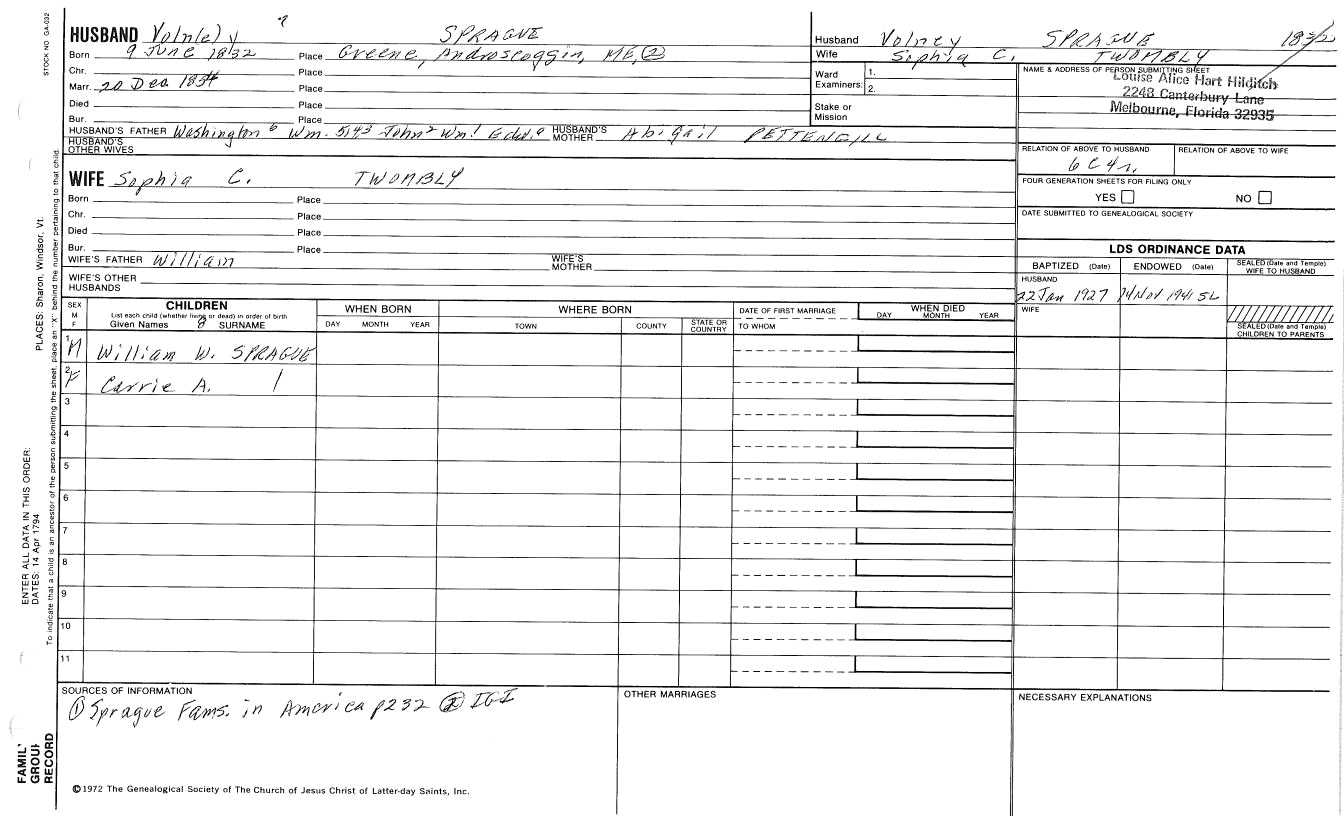 STOCK NO GA-032
HUSBAND Voln(e)y 7 SPRAGUE
Born 9 June 1832 Place Greene, Androscoggin, ME, (2)
Chr. Place
Marr. 20 Dec 1854 Place
Died Place
Bur. Place
HUSBAND'S FATHER Washington 6 Wm. 5,4,3 John 2 Wm. 1 Edw. 0 HUSBAND'S MOTHER Abigail PETTENGILL
HUSBAND'S OTHER WIVES
Husband Volney SPRAGUE 1832
Wife Sophia C. TWOMBLY
Ward Examiners: 1.
2.
Stake or Mission
NAME & ADDRESS OF PERSON SUBMITTING SHEET
Louise Alice Hart Hilditch
2248 Canterbury Lane
Melbourne, Florida 32935
RELATION OF ABOVE TO HUSBAND RELATION OF ABOVE TO WIFE
6C4r.
FOUR GENERATION SHEETS FOR FILING ONLY
YES NO
DATE SUBMITTED TO GENEALOGICAL SOCIETY
WIFE Sophia C. TWOMBLY
Born Place
Chr. Place
Died Place
Bur. Place
WIFE'S FATHER William WIFE'S MOTHER
WIFE'S OTHER HUSBANDS
LDS ORDINANCE DATA
BAPTIZED (Date) ENDOWED (Date) SEALED (Date and Temple) WIFE TO HUSBAND
HUSBAND
22 Jan 1927 14 Nov 1941 SL
WIFE
SEALED (Date and Temple) CHILDREN TO PARENTS
SEX M F
CHILDREN
List each child (whether living or dead) in order of birth
Given Names 8 SURNAME
WHEN BORN
DAY MONTH YEAR
WHERE BORN
TOWN COUNTY STATE OR COUNTRY
DATE OF FIRST MARRIAGE
TO WHOM
WHEN DIED
DAY MONTH YEAR
1 M William W. SPRAGUE
2 F Carrie A. |
3
4
5
6
7
8
9
10
11
SOURCES OF INFORMATION
(1) Sprague Fams. in America p232 (2) IGI
OTHER MARRIAGES
NECESSARY EXPLANATIONS
©1972 The Genealogical Society of The Church of Jesus Christ of Latter-day Saints, Inc.
ENTER ALL DATA IN THIS ORDER:
DATES: 14 Apr 1794
PLACES: Sharon, Windsor, Vt.
To indicate that a child is an ancestor of the person submitting the sheet, place an "X" behind the number pertaining to that child.
FAMIL'
GROUI
RECORD